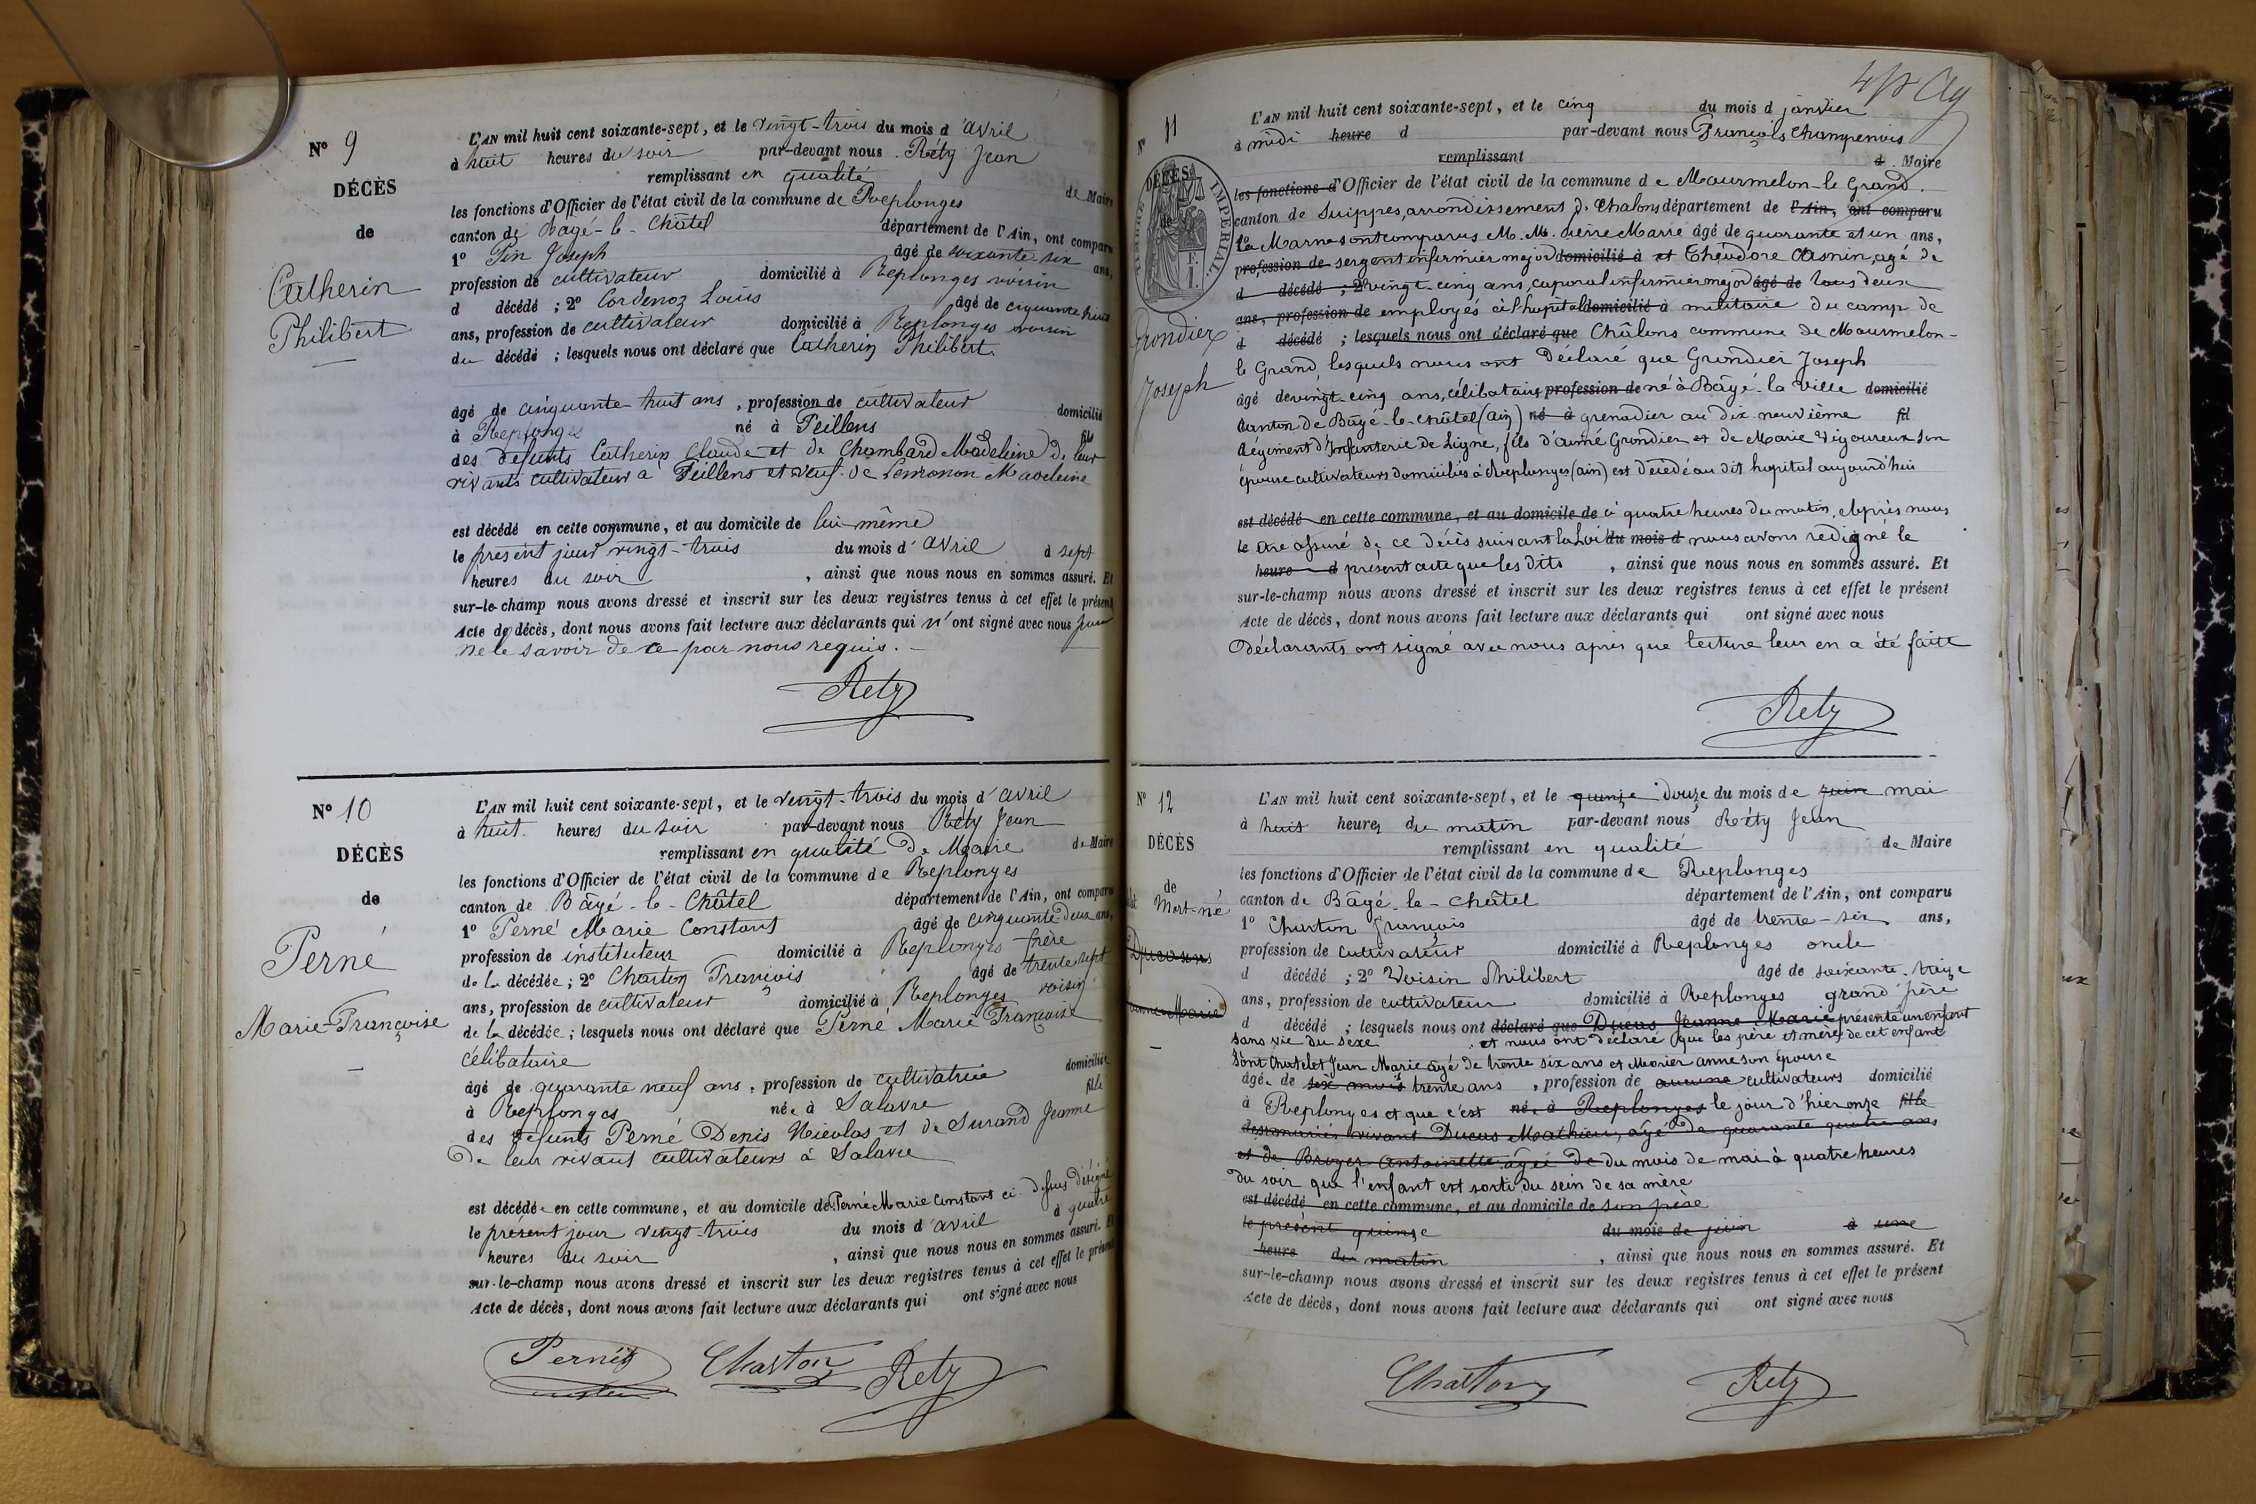 N° 9
DÉCÈS
de
Catherin
Philibert
L'AN mil huit cent soixante-sept, et le vingt-trois du mois d'avril
à huit heures du soir par-devant nous Réty Jean
remplissant en qualité de Maire
les fonctions d'Officier de l'état civil de la commune de Replonges
canton de Bagé-le-Châtel département de l'Ain, ont comparu
1° Pin Joseph âgé de soixante six ans,
profession de cultivateur domicilié à Replonges voisin
d décédé ; 2° Cordenoz Louis âgé de cinquante huit
ans, profession de cultivateur domicilié à Replonges voisin
du décédé ; lesquels nous ont déclaré que Catherin Philibert
âgé de cinquante-huit ans, profession de cultivateur domicilié
à Replonges né à Feillens fils
des défunts Catherin Claude et de Chambard Madeleine de leur
vivants cultivateurs à Feillens et veuf de Madeleine
est décédé en cette commune, et au domicile de lui-même
le présent jour vingt-trois du mois d'avril à sept
heures du soir, ainsi que nous nous en sommes assuré. Et
sur-le-champ nous avons dressé et inscrit sur les deux registres tenus à cet effet le présent
Acte de décès, dont nous avons fait lecture aux déclarants qui n'ont signé avec nous pour
ne le savoir de ce par nous requis.
Rety
N° 10
DÉCÈS
de
Perné
Marie-Françoise
L'AN mil huit cent soixante-sept, et le vingt-trois du mois d'avril
à huit heures du soir par-devant nous Réty Jean
remplissant en qualité de Maire de Maire
les fonctions d'Officier de l'état civil de la commune de Replonges
canton de Bâgé-le-Châtel département de l'Ain, ont comparu
1° Perné Marie Constant âgé de cinquante-deux ans,
profession de instituteur domicilié à Replonges frère
de la décédée ; 2° Charton François âgé de trente sept
ans, profession de cultivateur domicilié à Replonges voisin
de la décédée ; lesquels nous ont déclaré que Perné Marie Françoise
célibataire
âgé de quarante neuf ans, profession de cultivatrice domiciliée
à Replonges née à Salavre fille
des défunts Perné Denis Nicolas et de Surand Jeanne
De leur vivant cultivateurs à Salavre
est décédée en cette commune, et au domicile de Perné Marie Constant ci-dessus désigné
le présent jour vingt-trois du mois d'avril à quatre
heures du soir, ainsi que nous nous en sommes assuré. Et
sur-le-champ nous avons dressé et inscrit sur les deux registres tenus à cet effet le présent
Acte de décès, dont nous avons fait lecture aux déclarants qui ont signé avec nous
Perné Charton Rety
N° 11
DÉCÈS
de
TIMBRE IMPÉRIAL
Grondier
Joseph
L'AN mil huit cent soixante-sept, et le cinq du mois d janvier
à midi heure d par-devant nous François Champenois
remplissant d Maire
les fonctions d'Officier de l'état civil de la commune de Mourmelon-le Grand.
canton de Suippes, arrondissement de Chalons département de l'Ain, ont comparu
1° la Marne sont comparus M. M. Pierre Marie âgé de quarante et un ans,
profession de sergent infirmier major domicilié à et Théodore Asnin, agé de
d décédé ; 2° vingt-cinq ans, caporal infirmier major âgé de tous deux
ans, profession de employés à l'hopital domicilié à militaire du camp de
d décédé ; lesquels nous ont déclaré que Châlons commune de Mourmelon-
le Grand, lesquels nous ont Déclaré que Grondier Joseph
âgé de vingt-cinq ans, célibataire profession de né à Bâgé-la Ville domicilié
Canton de Bâgé-le-Châtel (Ain) né à grenadier au dix-neuvième fil
Régiment d'Infanterie de Ligne, fils d'aimé Grondier et de Marie Vigoureux son
épouse cultivateurs domiciliés à Replonges (ain) est décédé au dit hopital aujourd'hui
est décédé en cette commune, et au domicile de à quatre heures du matin, après nous
le être assuré de ce décès suivant la Loi du mois d nous avons redigné le
heure d présent acte que les dits, ainsi que nous nous en sommes assuré. Et
sur-le-champ nous avons dressé et inscrit sur les deux registres tenus à cet effet le présent
Acte de décès, dont nous avons fait lecture aux déclarants qui ont signé avec nous
Déclarants ont signé avec nous après que lecture leur en a été faite
Rety
N° 12
DÉCÈS
de
Mort-né
L'AN mil huit cent soixante-sept, et le quinze douze du mois de juin mai
à huit heures du matin par-devant nous Réty Jean
remplissant en qualité de Maire
les fonctions d'Officier de l'état civil de la commune de Replonges
canton de Bâgé-le-Châtel département de l'Ain, ont comparu
1° Charton François âgé de trente-six ans,
profession de cultivateur domicilié à Replonges oncle
d décédé ; 2° Voisin Philibert âgé de soixante-treize
ans, profession de cultivateur domicilié à Replonges grand'père
d décédé ; lesquels nous ont déclaré que Ducas Jeanne Marie présenté un enfant
sans vie du sexe et nous ont déclaré que les père et mère de cet enfant
sont Chatelet Jean Marie âgé de trente six ans et Monier anne son épouse
âgée de six mois trente ans, profession de aucune cultivateurs domicilié
à Replonges et que c'est née à Replonges le jour d'hier onze fille
des mariés vivant Ducas Mathieu, âgé de quarante quatre ans
et de Broyer Antoinette âgée de du mois de mai à quatre heures
du soir que l'enfant est sorti du sein de sa mère
est décédé en cette commune, et au domicile de son père
le présent quinze du mois de juin à une
heure du matin, ainsi que nous nous en sommes assuré. Et
sur-le-champ nous avons dressé et inscrit sur les deux registres tenus à cet effet le présent
Acte de décès, dont nous avons fait lecture aux déclarants qui ont signé avec nous
Charton Rety